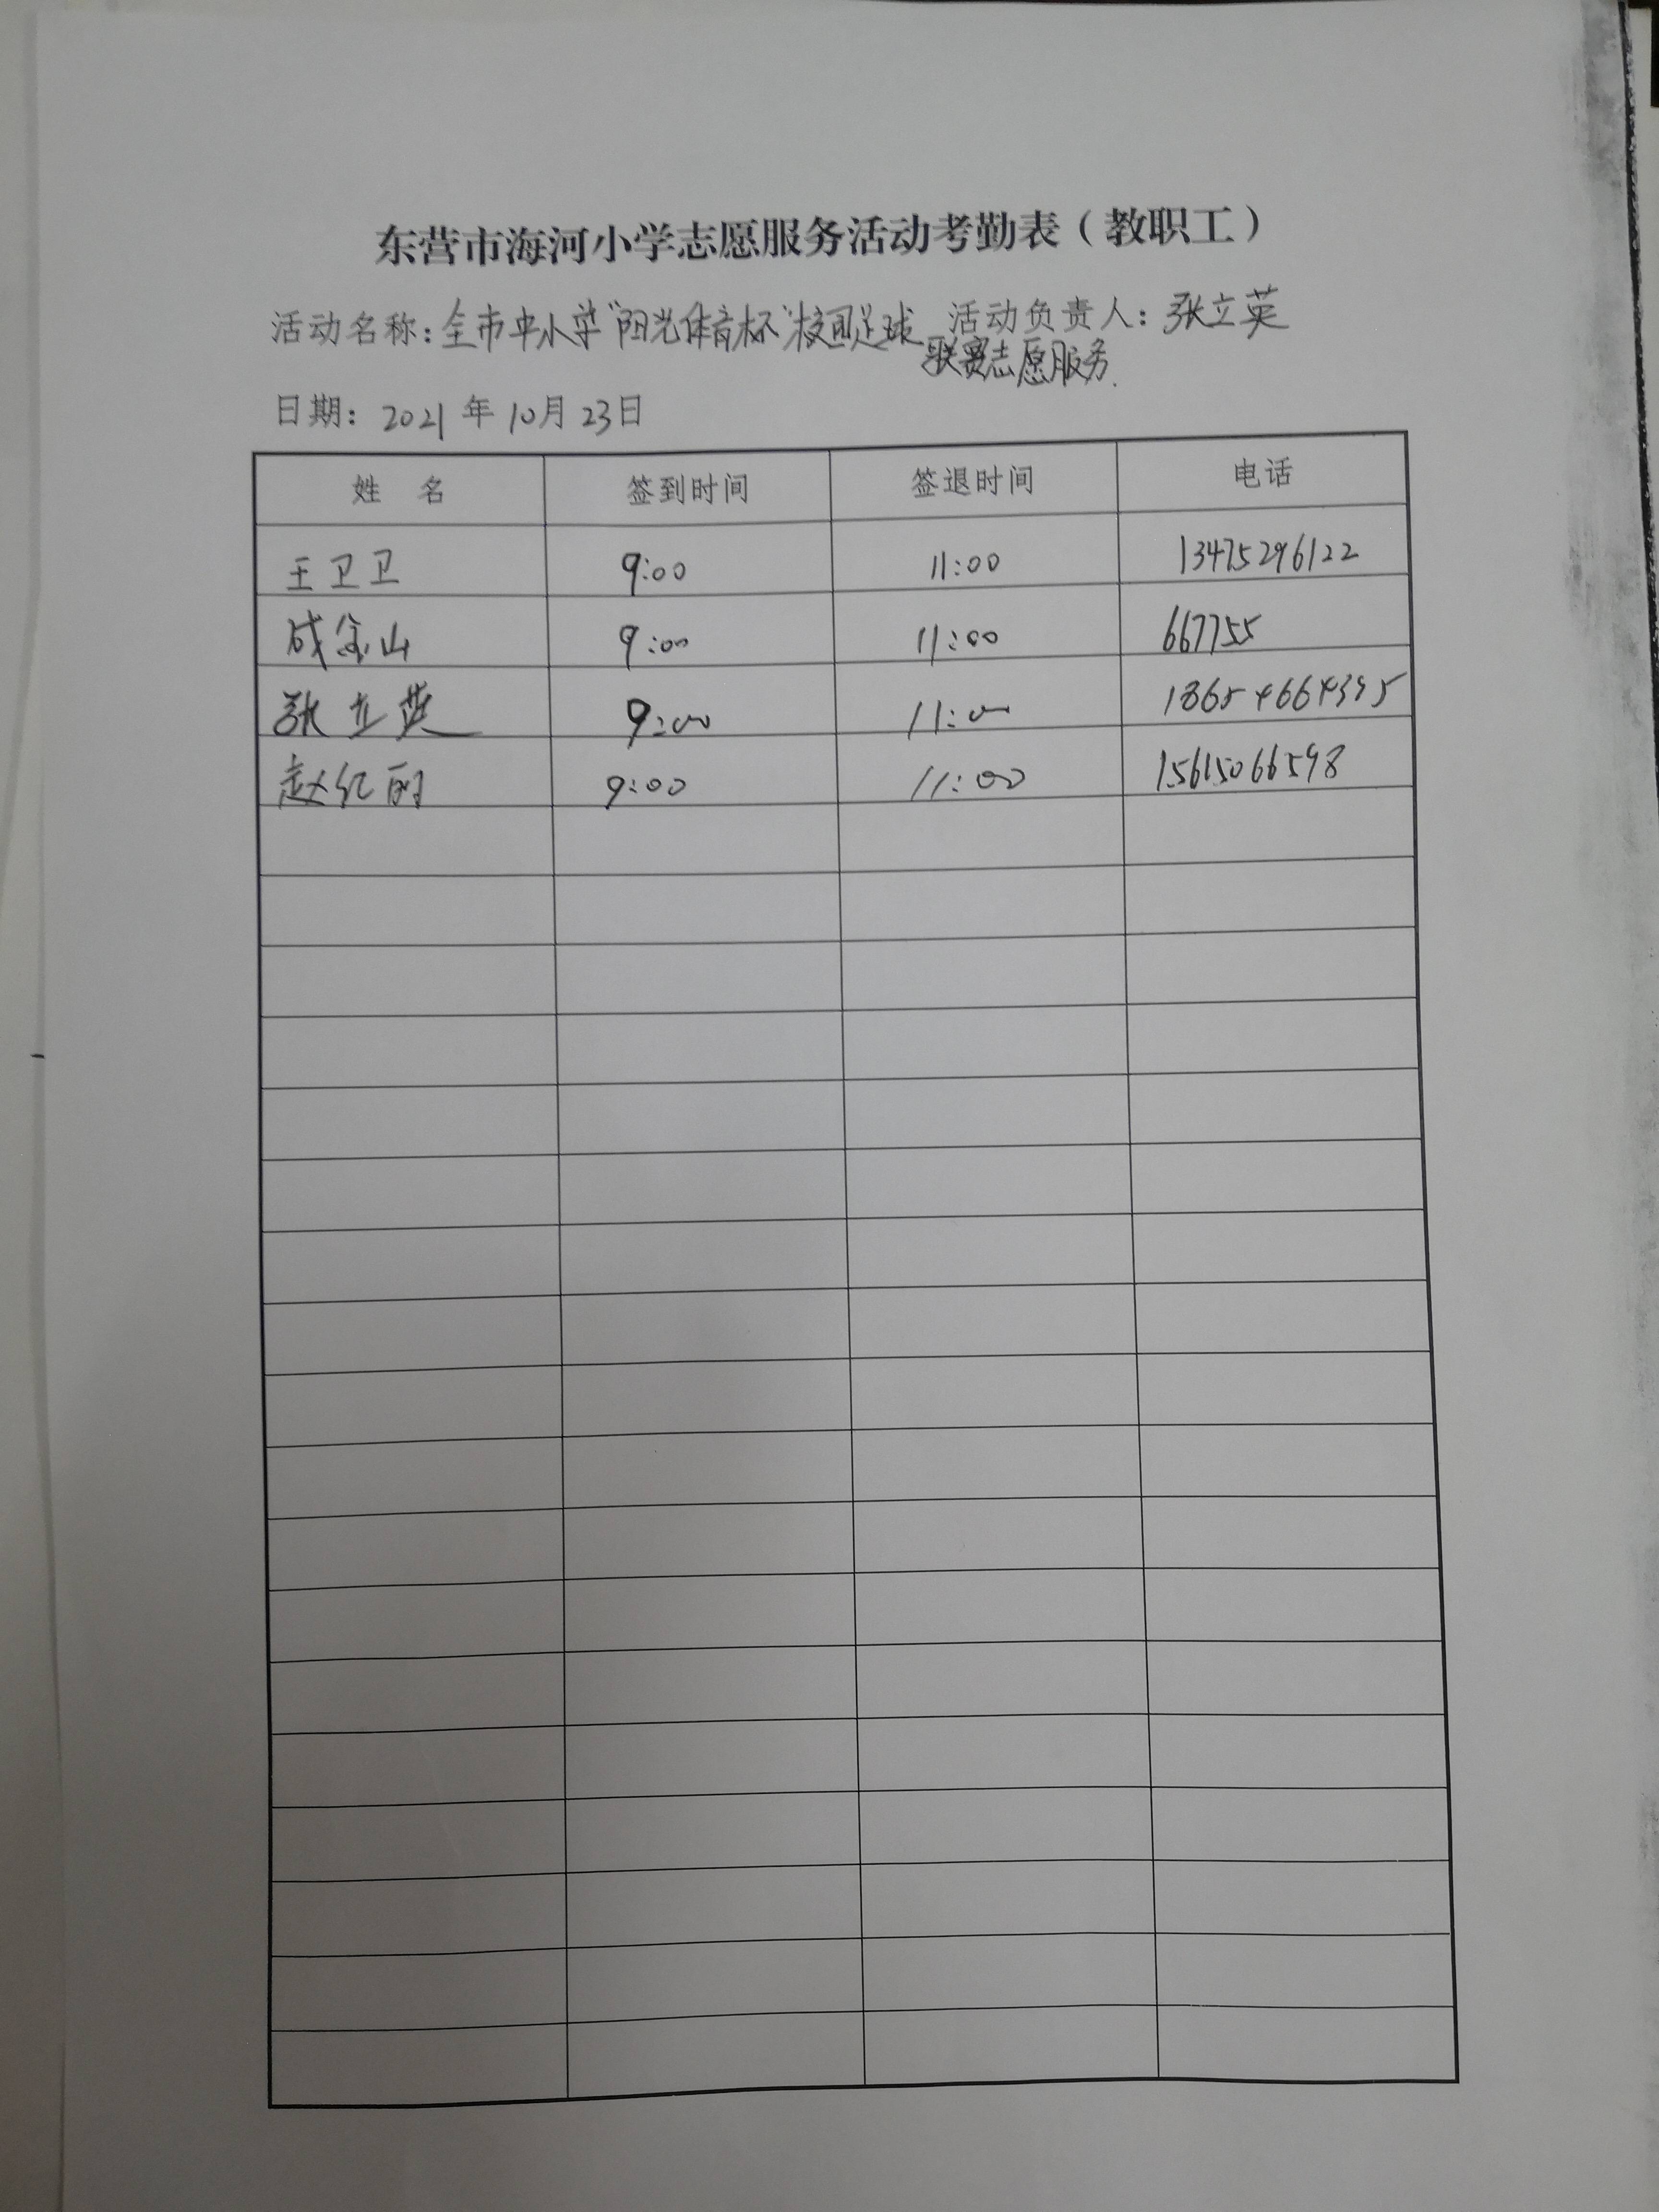 东营市海河小学志愿服务活动考勤表（教职工）
活动名称：全市中小学“阳光体育杯”校园足球 活动负责人：张立英
联赛志愿服务
日期：2021年10月23日
姓 名 签到时间 签退时间 电话
王卫卫 9:00 11:00 13475296122
成金山 9:00 11:00 667755
张立英 9:00 11:00
赵红丽 9:00 11:00 15615066598